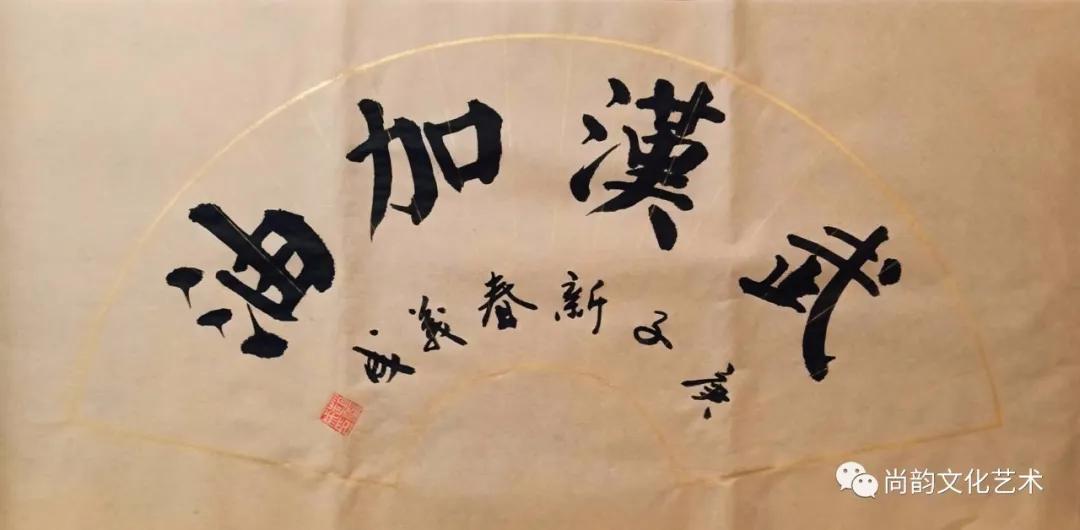 武漢加油
庚子新春義
尚韵文化艺术